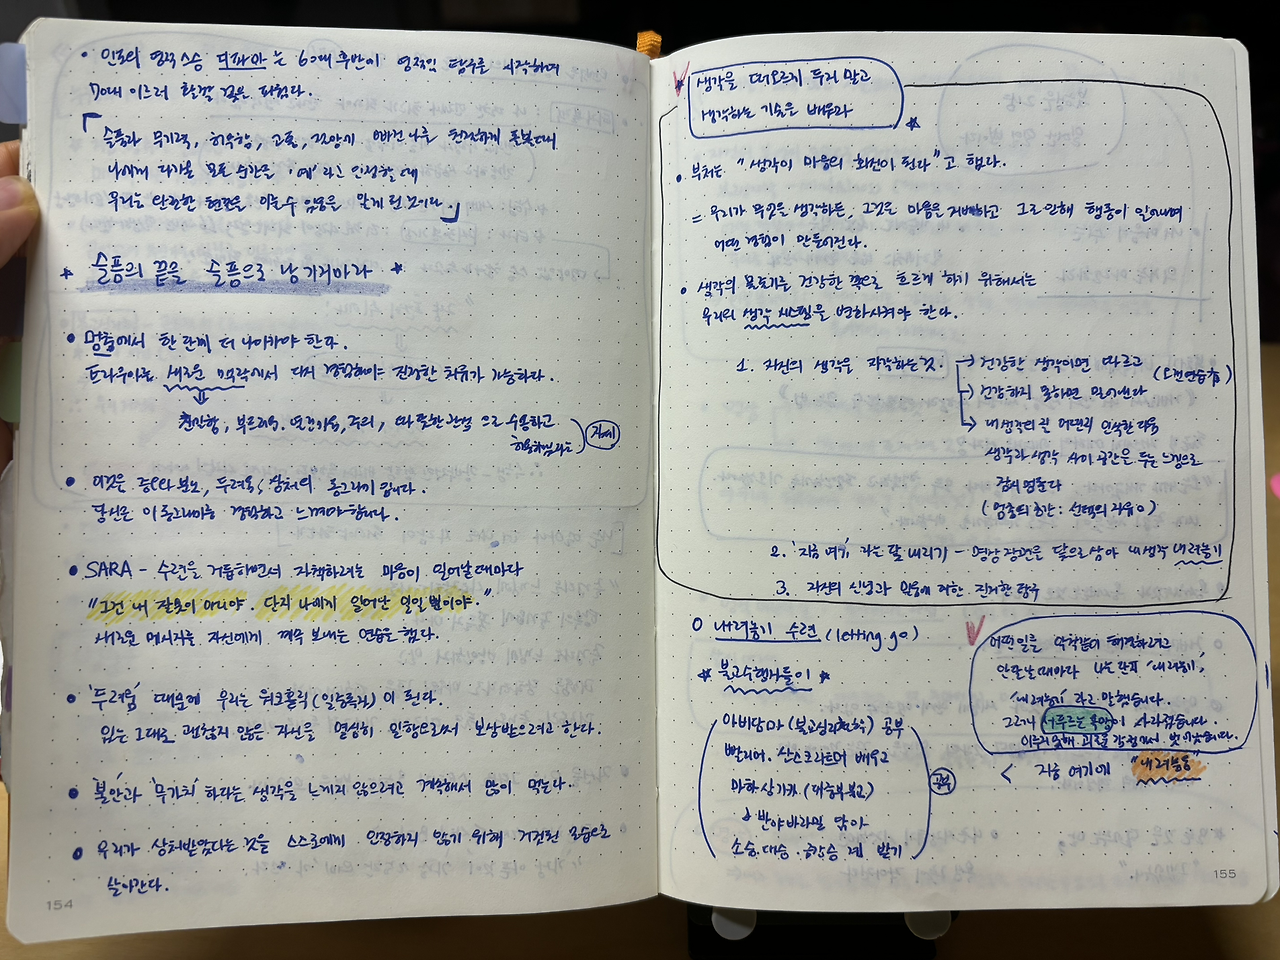 • 인도의 영적 스승 디파마는 60대 후반에 영적인 탐구를 시작하여
70대 이르러 활짝 꽃을 피웠다.
「슬픔과 무기력, 허약함, 고통,
나에게 다가올 모든 순간을 '예'라고 인정할 때
우리는 안전한 현존을 이룰 수 있음을 알게 된 것이다.」
* 슬픔의 끝을 슬픔으로 남기지마라 *
• 멈춤에서 한 단계 더 나아가야 한다.
트라우마는 새로운 맥락에서 다시 경험해야 진정한 치유가 가능하다.
⇓
친절함, 부드러움, 주의, 따뜻한 관심 으로 수용하고
허용하십시오 자애
• 이것은 두려움, 상처의 동그라미 입니다.
당신은 이 동그라미를 경험하고 느껴야 합니다.
• SARA - 수련을 거듭하면서 자책하려는 마음이 일어날 때마다
"그건 내 잘못이 아니야. 단지 나에게 일어난 일일 뿐이야."
새로운 메시지를 자신에게 계속 보내는 연습을 했다.
• '두려움' 때문에 우리는 워크홀릭(일중독자)이 된다.
있는 그대로 괜찮지 않은 자신을 열심히 일함으로써 보상받으려고 한다.
• '불안'과 '무가치'하다는 생각을 느끼지 않으려고 계속해서 많이 먹는다.
• 우리가 상처받았다는 것을 스스로에게 인정하지 않기 위해 거짓된 모습으로
살아간다.
154
생각을 떠오르지 두려 말고
생각하는 기술을 배우라
*
• 부처는 "생각이 마음의 회전이 된다"고 했다.
= 우리가 무엇을 생각하든, 그것은 마음을 지배하고 그로 인해 행동이 일어나며
어떤 경험이 만들어진다.
• 생각의 물줄기를 건강한 쪽으로 흐르게 하기 위해서는
우리의 생각 시스템을 변화시켜야 한다.
1. 자신의 생각을 자각하는 것. → 건강한 생각이면 따르고
→ 건강하지 못하면 밀어낸다
→ 내 생각의 틀 어딘가 익숙한 마음
생각과 생각 사이 공간을 두는 느낌으로
잠시 멈춘다
(멈춤의 순간 : 선택의 자유 ㅇ)
2. '지금 여기' 라는 닻 내리기 - 명상 장면을 닻으로 삼아 내 생각 내려놓기
3. 자신의 신념과 믿음에 대한 진지한 탐구
○ 내려놓기 수련 (letting go)
* 불교수행자들이 *
아비담마 (불교심리철학) 공부
빨리어, 산스크리트어 배우고
마하상기카 (대중부 불교)
반야바라밀 닦아
소승, 대승 계 받기
공부
어떤 일을 악착같이 해결하려고
안달 날 때마다 나는 단지 '내려놓기',
'내려놓기' 라고 말했습니다.
그러나 서두르는 욕망이 사라졌습니다.
괴로운 감정에서 벗어났습니다.
< 지금 여기에 "내려놓음"
155